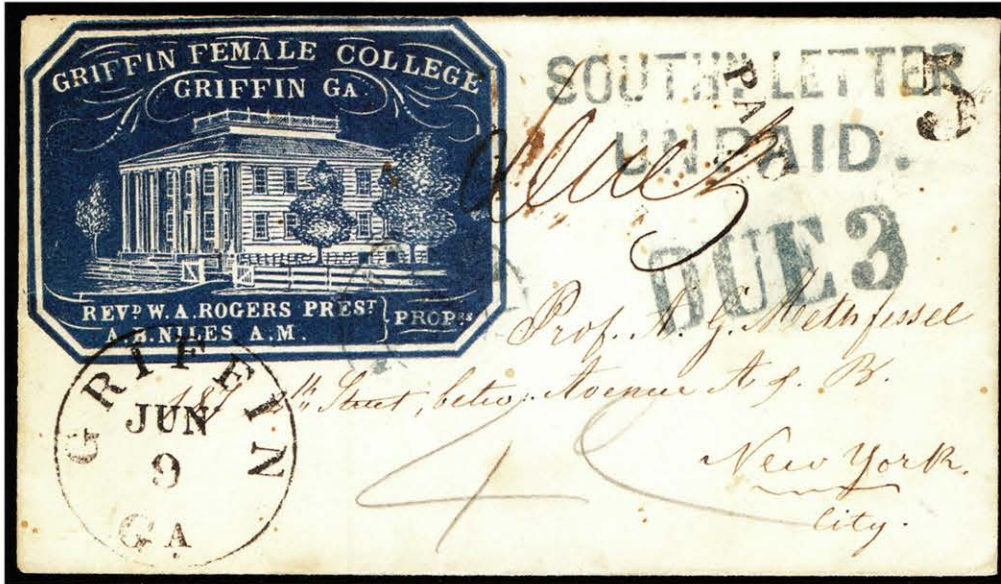 GRIFFIN FEMALE COLLEGE
GRIFFIN GA.
REVD W. A. ROGERS PREST
A. B. NILES A.M.
PROPRS
SOUTHN LETTER
UNPAID.
PAID
5
due 3
DUE 3
GRIFFIN
JUN
9
GA
Prof. A. G. Methfessel
Street, betw. Avenue A & B.
New York.
City.